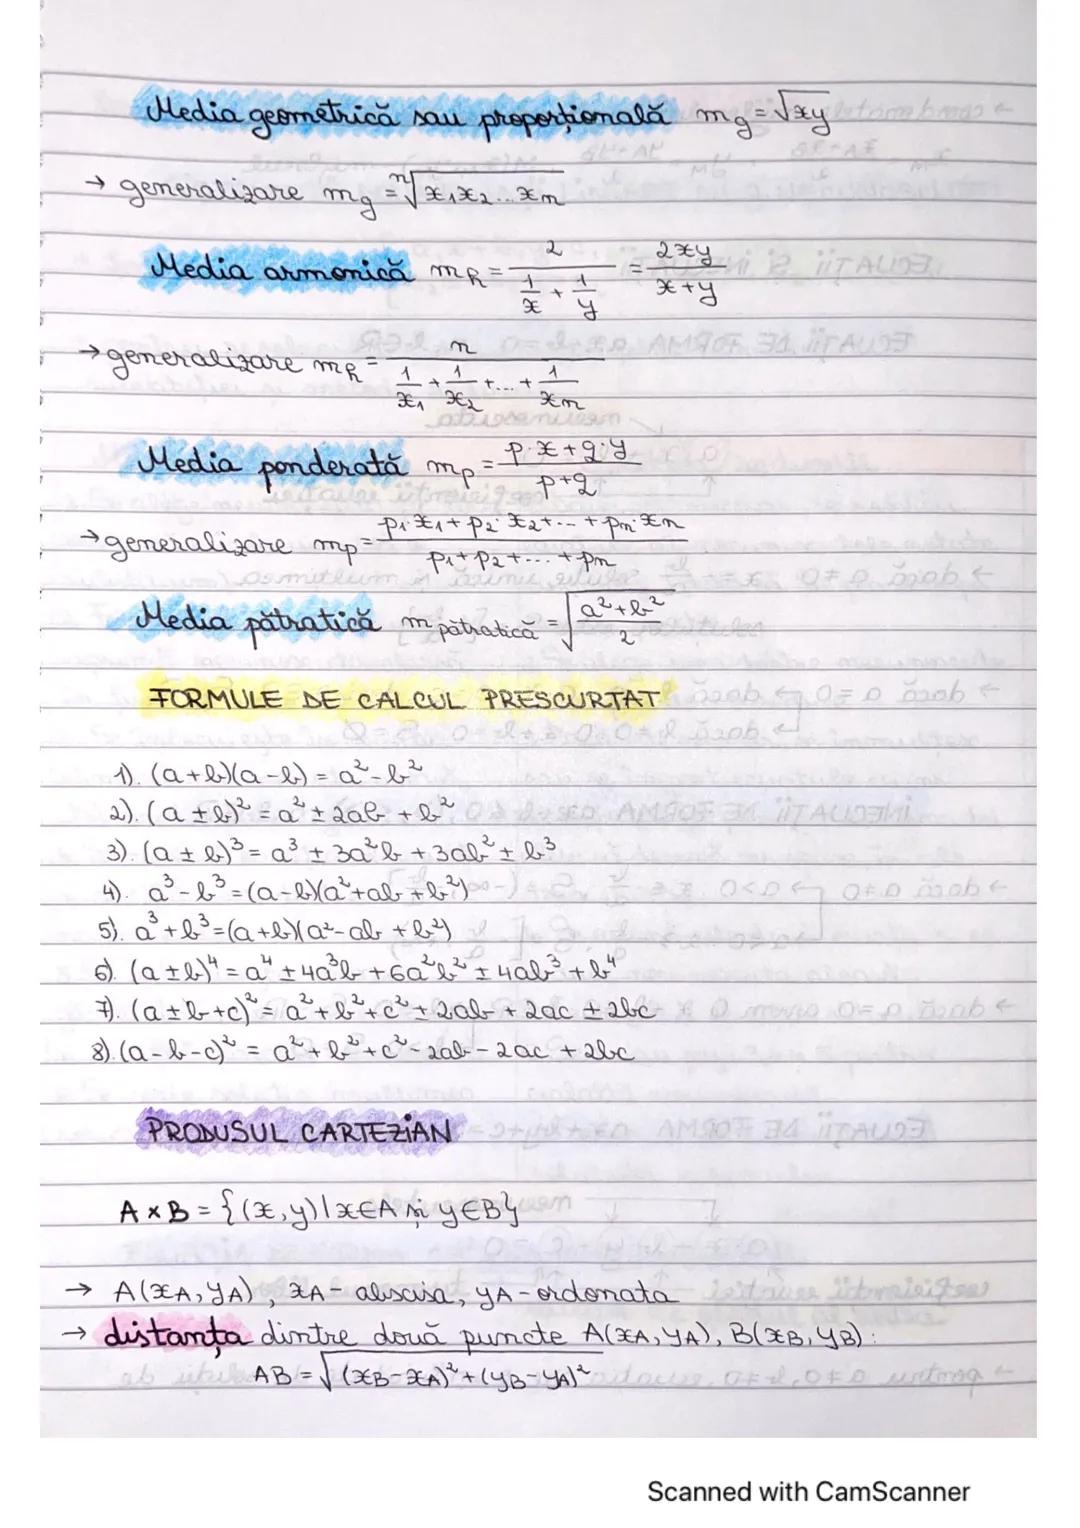 Media geometrică sau proporțională m_g = √xy
→ generalizare m_g = ⁿ√x₁x₂...xₙ
Media armonică m_h = 2/(1/x + 1/y) = 2xy/(x+y)
→ generalizare m_h = n/(1/x₁ + 1/x₂ + ... + 1/xₙ)
Media ponderată m_p = (p·x + q·y)/(p+q)
→ generalizare m_p = (p₁·x₁ + p₂·x₂ + ... + pₙ·xₙ)/(p₁ + p₂ + ... + pₙ)
Media pătratică m pătratică = √((a² + b²)/2)
FORMULE DE CALCUL PRESCURTAT
1). (a+b)(a-b) = a² - b²
2). (a ± b)² = a² ± 2ab + b²
3). (a ± b)³ = a³ ± 3a²b + 3ab² ± b³
4). a³ - b³ = (a-b)(a² + ab + b²)
5). a³ + b³ = (a+b)(a² - ab + b²)
6). (a ± b)⁴ = a⁴ ± 4a³b + 6a²b² ± 4ab³ + b⁴
7). (a ± b + c)² = a² + b² + c² ± 2ab + 2ac ± 2bc
8). (a - b - c)² = a² + b² + c² - 2ab - 2ac + 2bc
PRODUSUL CARTEZIAN
A × B = {(x, y) | x ∈ A și y ∈ B}
→ A(x_A, y_A), x_A - abscisa, y_A - ordonata
→ distanța dintre două puncte A(x_A, y_A), B(x_B, y_B):
AB = √((x_B - x_A)² + (y_B - y_A)²)
Scanned with CamScanner